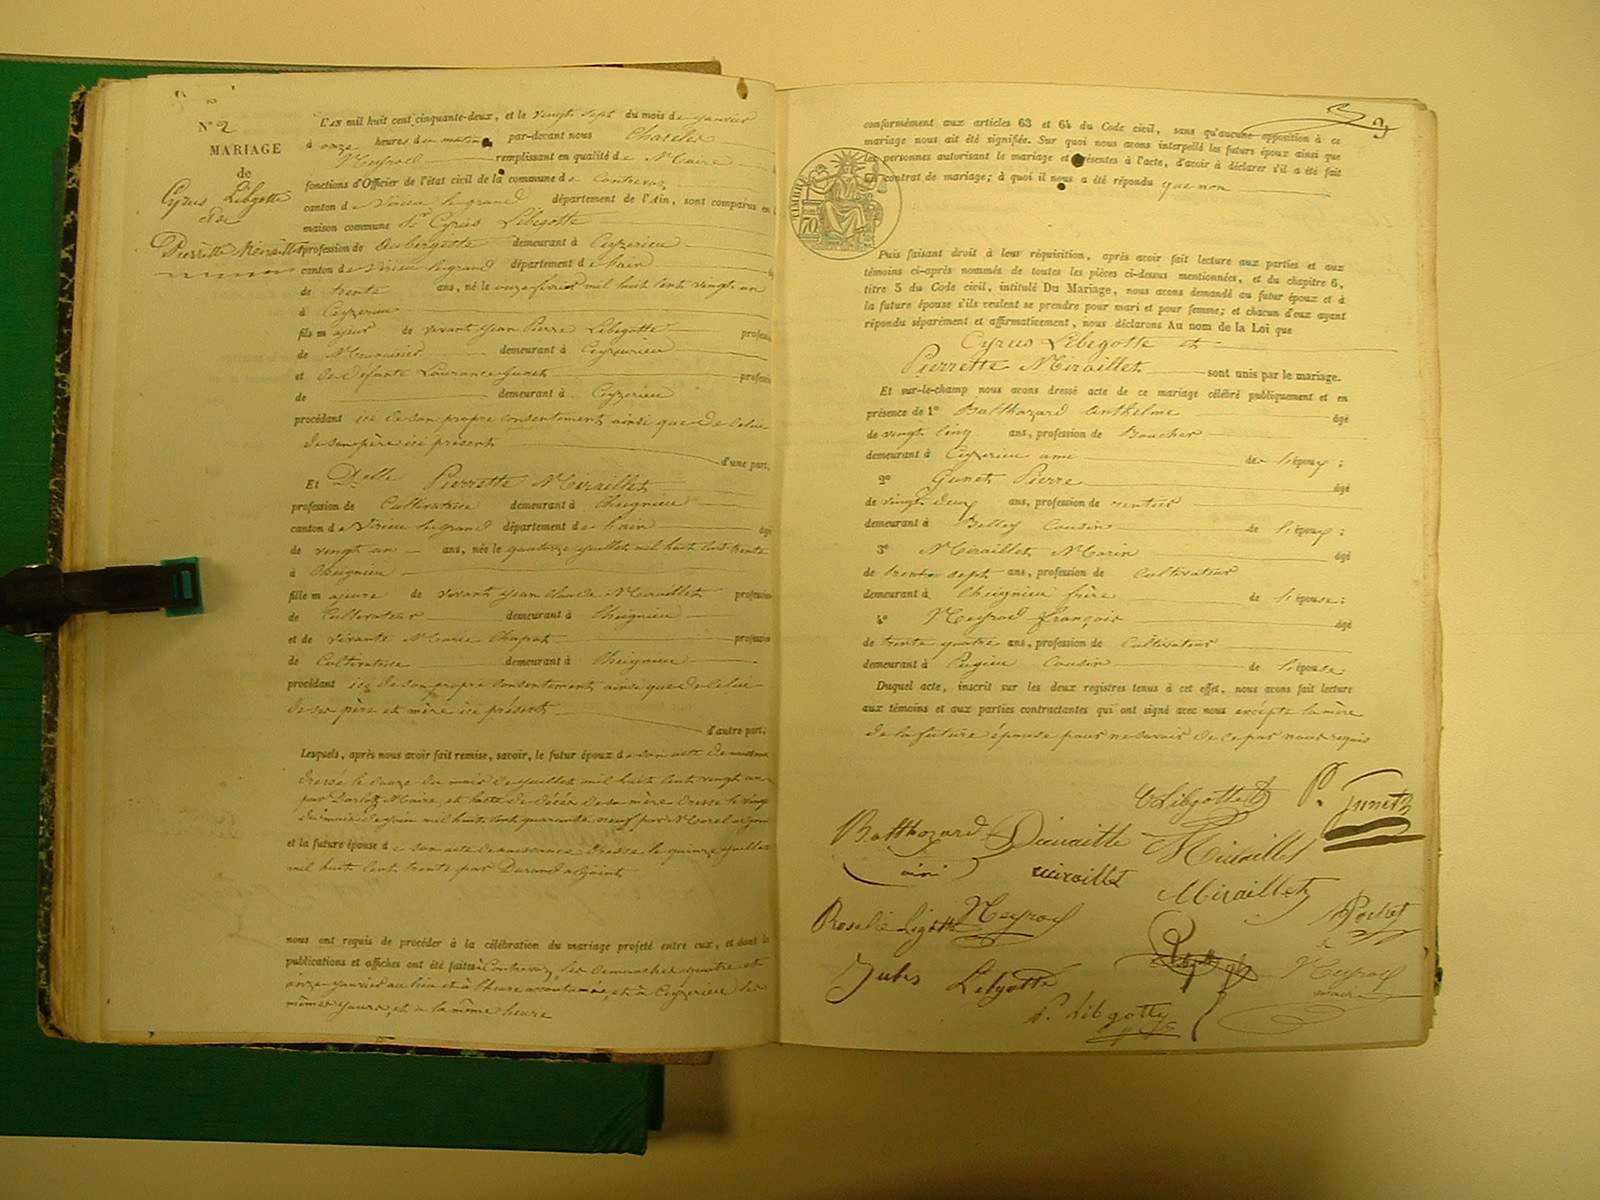 N° 2
MARIAGE
de
Cyrus Libgotte
& de
Pierrette Miraillet
L'AN mil huit cent cinquante-deux, et le vingt sept du mois de janvier
à onze heures du matin par-devant nous Charles
Meyrod remplissant en qualité de Maire
fonctions d'Officier de l'état civil de la commune de Contrevoz
canton de Virieu le grand département de l'Ain, sont comparus en
maison commune Sr Cyrus Libegotte
profession de Aubergiste demeurant à Ceyzerieu
canton de Virieu le grand département de l'ain
de trente ans, né le onze mil huit cent vingt un
à Ceyzerieu
fils majeur de vivant Jean Pierre Libegotte profession
de Menuisier demeurant à Ceyzerieu
et de défunte Laurance Gunet profession
de demeurant à Ceyzerieu
procédant ici de son propre consentement ainsi que de celui
de son père ici présent
d'une part;
Et Delle Pierrette Miraillet
profession de Cultivatrice demeurant à Cheignieu
canton de Virieu le grand département de l'ain âgé
de vingt un ans, née le quatorze juillet mil huit cent trente
à Cheignieu
fille majeure de vivant Jean Claude Miraillet profession
de Cultivateur demeurant à Cheignieu
et de vivante Marie Chapot profession
de Cultivatrice demeurant à Cheignieu
procédant ici de son propre consentement ainsi que de celui
de ses père et mère ici présent
d'autre part;
Lesquels, après nous avoir fait remise, savoir, le futur époux de son acte de naissance
dressé le douze du mois de juillet mil huit cent vingt un
par Maire, et l'acte de décès de sa mère dressé le vingt
du mois de juin mil huit cent quarante neuf par Morel adjoint
et la future épouse de son acte de naissance dressé le quinze juillet
mil huit cent trente par Durand adjoint
nous ont requis de procéder à la célébration du mariage projeté entre eux, et dont les
publications et affiches ont été faites à Contrevoz, les dimanches quatre et
onze janvier au lieu et à l'heure accoutumée, et à Ceyzerieu les
mêmes jours, et à la même heure
3
conformément aux articles 63 et 64 du Code civil, sans qu'aucune opposition à ce
mariage nous ait été signifiée. Sur quoi nous avons interpellé les futurs époux ainsi que
les personnes autorisant le mariage et présentes à l'acte, d'avoir à déclarer s'il a été fait
un contrat de mariage; à quoi il nous a été répondu que non
TIMBRE
70
Puis faisant droit à leur réquisition, après avoir fait lecture aux parties et aux
témoins ci-après nommés de toutes les pièces ci-dessus mentionnées, et du chapitre 6,
titre 5 du Code civil, intitulé Du Mariage, nous avons demandé au futur époux et à
la future épouse s'ils veulent se prendre pour mari et pour femme; et chacun d'eux ayant
répondu séparément et affirmativement, nous déclarons Au nom de la Loi que
Cyrus Libegotte et
Pierrette Miraillet sont unis par le mariage.
Et sur-le-champ nous avons dressé acte de ce mariage célébré publiquement et en
présence de 1° Balthazard Anthelme âgé
de vingt cinq ans, profession de Boucher
demeurant à Ceyzerieu ami de l'époux;
2° Gunet Pierre âgé
de vingt deux ans, profession de rentier
demeurant à Belley Cousin de l'époux;
3° Miraillet Marin âgé
de trente sept ans, profession de Cultivateur
demeurant à Cheignieu frère de l'épouse;
4° Meyrod françois âgé
de trente quatre ans, profession de Cultivateur
demeurant à Pugieu Cousin de l'épouse
Duquel acte, inscrit sur les deux registres tenus à cet effet, nous avons fait lecture
aux témoins et aux parties contractantes qui ont signé avec nous excepté la mère
de la future épouse pour ne savoir de ce par nous requis
C Libgotte P. Gunet
Balthazard Miraillet
(ami) miraillet Miraillet
Rosalie Ligotte Meyrod
Jules Libgotte Meyrod
maire
P. Libgotty